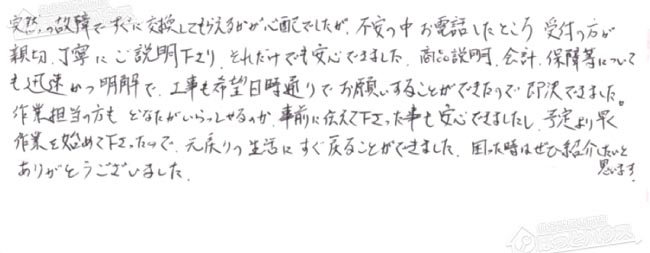 突然の故障で すぐに交換してもらえるかが心配でしたが、不安の中 お電話したところ 受付の方が
親切、丁寧に ご説明下さり、それだけでも安心できました。商品説明、会計、保障等について
も迅速かつ明解で、工事も希望日時通りでお願いすることができたので 即決できました。
作業担当の方も どなたがいらっしゃるのか、事前に伝えて下さった事も 安心できましたし、予定より早く
作業を始めて下さったので、元戻りの生活に すぐ戻ることができました。困った時はぜひ紹介したいと
思います。
ありがとうございました。